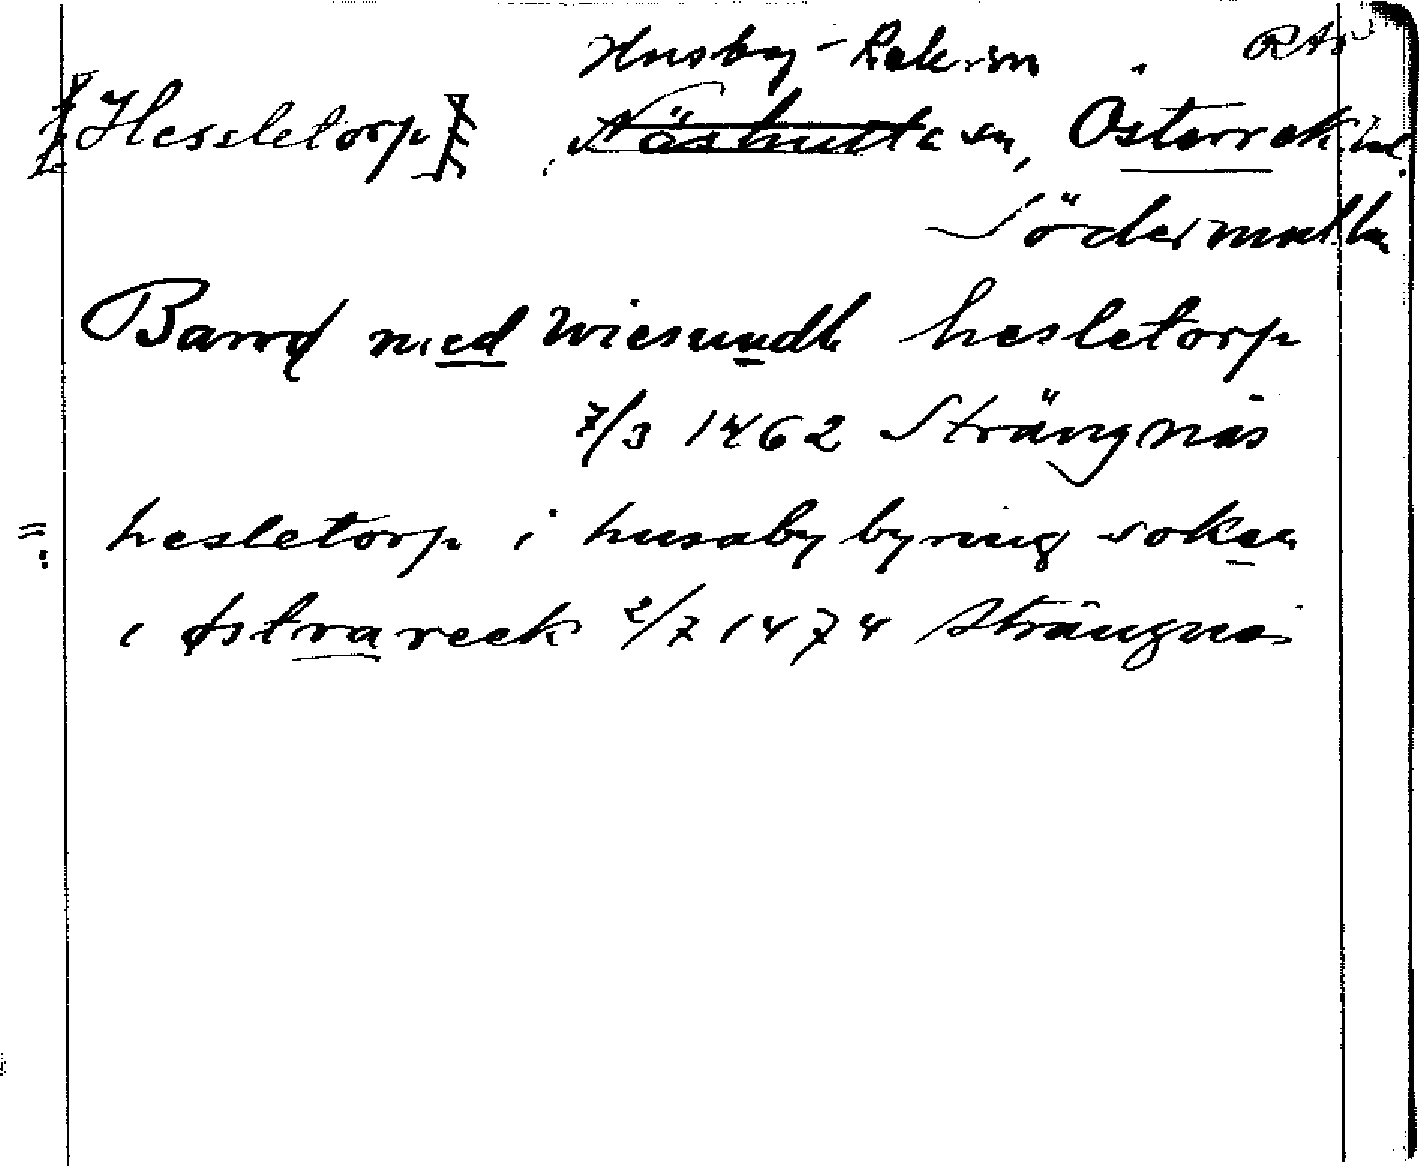 Husby-Rek. sn . RAp
Hessletorp, Näshulta sn, Österrek. hd.
Södermanl.
Barnd med wiesundh hesletorp
7/3 1462 Strängnäs
= hesletorp i husaby byring soken
i østra reek 2/7 1474 Strängnäs